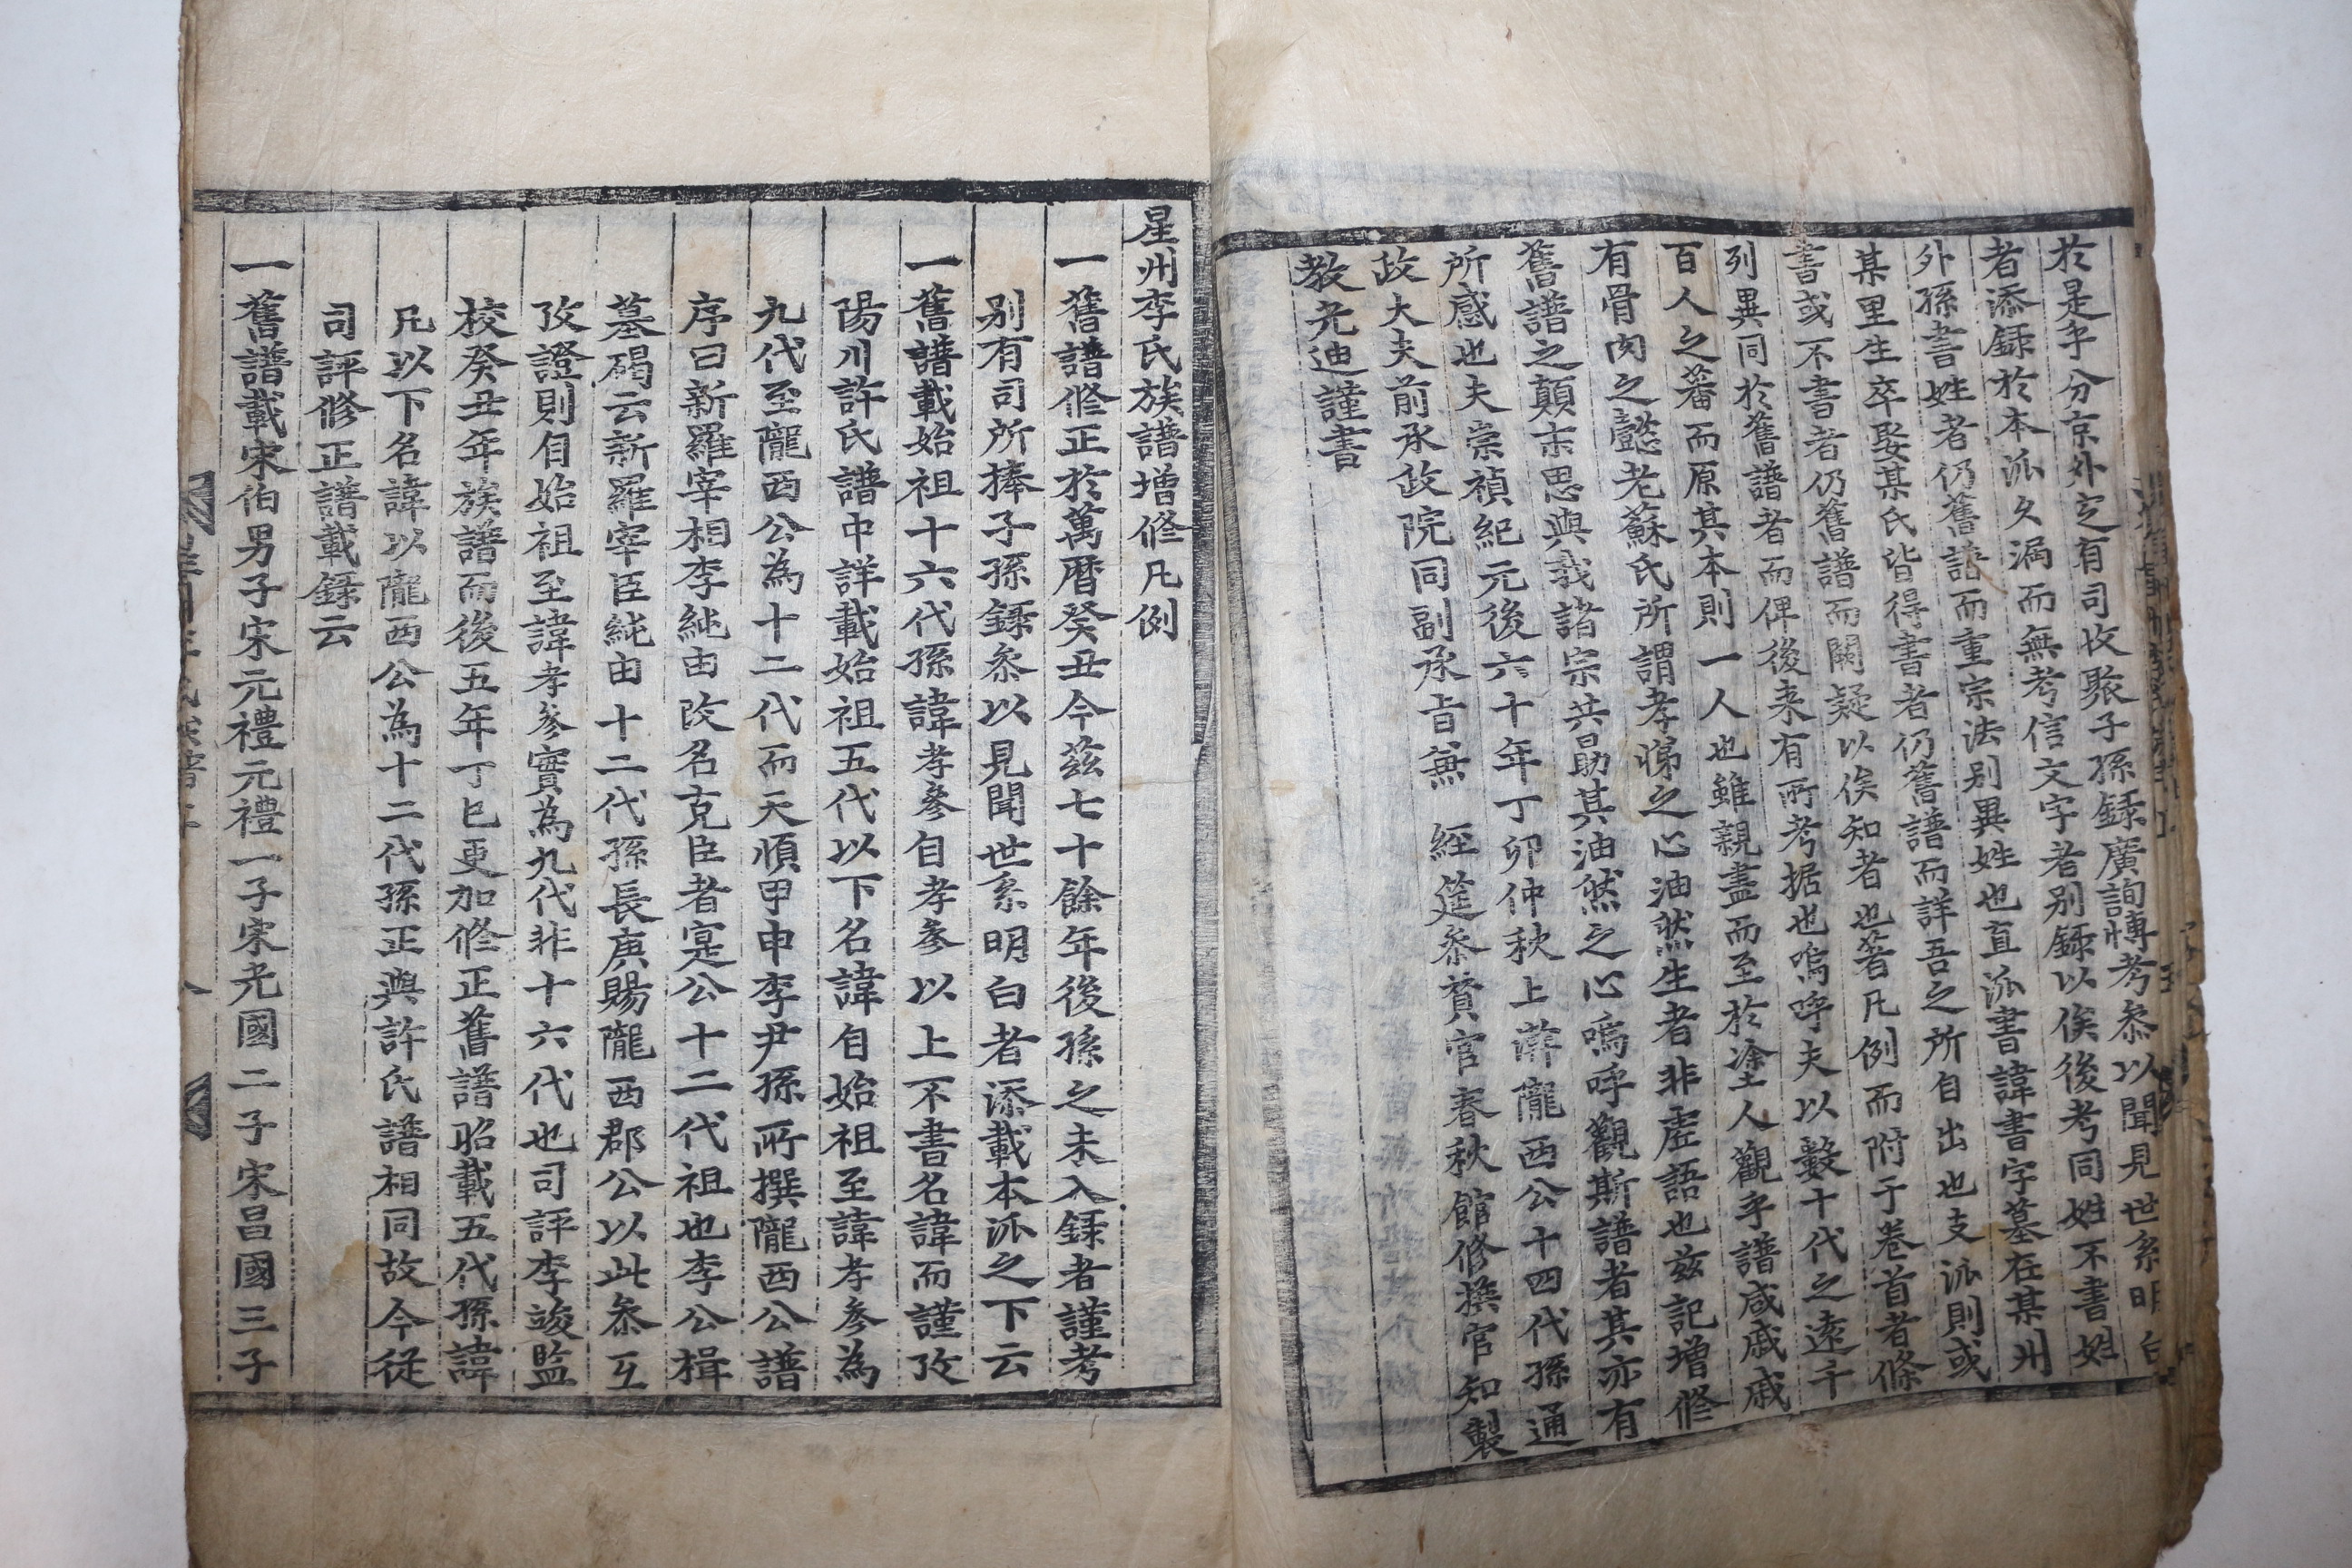 於是乎分京外定有司收聚子孫錄廣詢博考叅以聞見世系明白
者添錄於本派久漏而無考信文字者別錄以俟後考同姓不書姓
外孫書姓者仍舊譜而重宗法別異姓也直派書諱書字墓在某州
某里生卒娶某氏皆得書者仍舊譜而詳吾之所自出也支派則或
書或不書者仍舊譜而闕疑以俟知者也著凡例而附于卷首者條
列異同於舊譜者而俾後来有所考据也嗚呼夫以數十代之遠千
百人之蕃而原其本則一人也雖親盡而至於塗人觀乎譜咸戚戚
有骨肉之懿老蘇氏所謂孝悌之心油然生者非虛語也玆記增修
舊譜之顛末思與我諸宗共勗其油然之心嗚呼觀斯譜者其亦有
所感也夫崇禎紀元後六十年丁卯仲秋上澣隴西公十四代孫通
政大夫前承政院同副承旨兼 經筵叅贊官春秋館修撰官知製
教光迪謹書
星州李氏族譜增修凡例
一舊譜修正於萬曆癸丑今玆七十餘年後孫之未入錄者謹考
別有司所捧子孫錄叅以見聞世系明白者添載本派之下云
一舊譜載始祖十六代孫諱孝參自孝參以上不書名諱而謹攷
陽川許氏譜中詳載始祖五代以下名諱自始祖至諱孝參為
九代至隴西公為十二代而天順甲申李尹孫所撰隴西公譜
序曰新羅宰相李純由改名克臣者寔公十二代祖也李公楫
墓碣云新羅宰臣純由十二代孫長庚賜隴西郡公以此叅互
攷證則自始祖至諱孝參實為九代非十六代也司評李竣監
校癸丑年族譜而後五年丁巳更加修正舊譜昭載五代孫諱
凡以下名諱以隴西公為十二代孫正與許氏譜相同故今從
司評修正譜載錄云
一舊譜載宋伯男子宋元禮元禮一子宋光國二子宋昌國三子